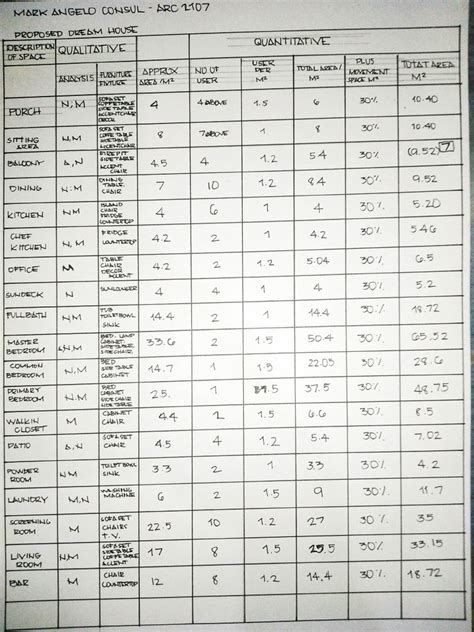 MARK ANGELO CONSUL - ARC 2107
PROPOSED DREAM HOUSE
DESCRIPTION OF SPACE QUALITATIVE QUANTITATIVE
ANALYSIS FURNITURE FIXTURE APPROX AREA/M² NO OF USER USER PER M² TOTAL AREA/M² PLUS MOVEMENT SPACE M² TOTAL AREA M²
PORCH N,M SOFA SET COFFE TABLE SIDE TABLE ACCENT CHAIR DECOR 4 4 above 1.5 6 30% 10.40
SITTING AREA N,M SOFA SET COFFE TABLE SIDETABLE ACCENTCHAIR 8 7 above 1 8 30% 10.40
BALCONY A,N FIREPIT SIDETABLE ACCENT CHAIR 4.5 4 1.2 5.4 30% (9.52) 7
DINING N,M DINING TABLE CHAIR 7 10 1.2 8.4 30% 9.52
KITCHEN N,M ISLAND CHAIR FRIDGE COUNTERTOP 4 6 1 4 30% 5.20
CHEF KITCHEN N,M FRIDGE COUNTERTOP 4.2 2 1 4.2 30% 5.46
OFFICE M TABLE CHAIR DECOR ACCENT 4.2 2 1.2 5.04 30% 6.5
SUNDECK N SUNLOUNGER 4 4 1 4 30% 5.2
FULLBATH N,M TUB TOILET BOWL SINK 14.4 2 1 14.4 30% 18.72
MASTER BEDROOM A,N,M BED, LAMP CABINET SIDETABLE, SIDE CHAIR, 33.6 2 1.5 50.4 30% 65.52
COMMON BEDROOM N,M BED SIDE TABLE CABINET 14.7 1 1.5 22.05 30% 28.6
PRIMARY BEDROOM N,M BED CABINET SIDE CHAIR SIDE TABLE 25. 1 1.5 37.5 30% 48.75
WALKIN CLOSET M CABINET CHAIR 4.4 2 1.5 6.6 30% 8.5
PATIO A,N SOFA SET CHAIR 4.5 4 1.2 5.4 30% 7.02
POWDER ROOM N,M TOILET BOWL SINK 3.3 2 1 3.3 30% 4.2
LAUNDRY M,N WASHING MACHINE 6 2 1.5 9 30% 11.7
SCREENING ROOM M SOFA SET CHAIRS T.V. 22.5 10 1.2 27 30% 35
LIVING ROOM N,M SOFA SET SIDETABLE COFFE TABLE ACCENT 17 8 1.5 25.5 30% 33.15
BAR M CHAIR COUNTERTOP 12 8 1.2 14.4 30% 18.72